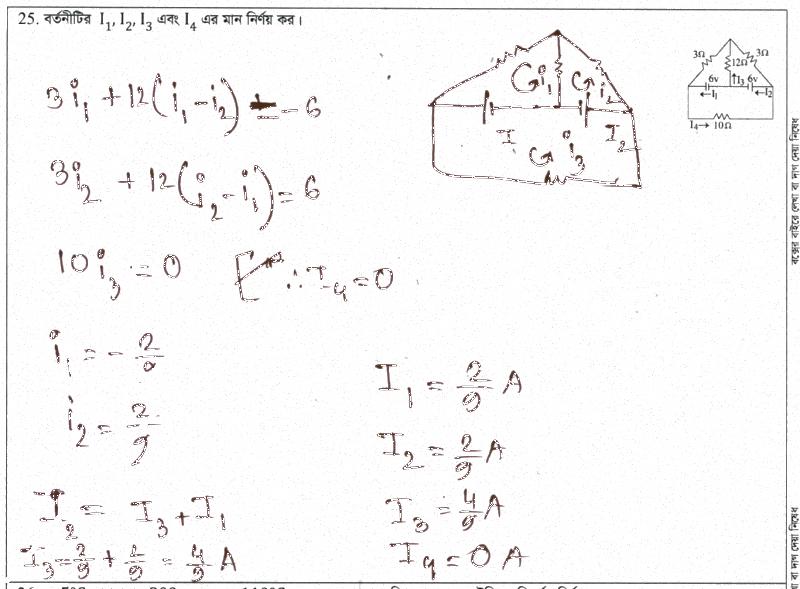 25. বর্তনীটির I₁, I₂, I₃ এবং I₄ এর মান নির্ণয় কর।
3Ω 3Ω
12Ω
6v I₃ 6v
I₁ I₂
I₄→ 10Ω
i₁ i₂
I I₂
i₃
3i₁ + 12(i₁ - i₂) = -6
3i₂ + 12(i₂ - i₁) = 6
10i₃ = 0 ∴ I₄ = 0
i₁ = - 2/9
i₂ = 2/9
I₂ = I₃ + I₁
I₃ = 2/9 + 2/9 = 4/9 A
I₁ = 2/9 A
I₂ = 2/9 A
I₃ = 4/9 A
I₄ = 0 A
বক্সের বাইরে লেখা বা দাগ দেয়া নিষেধ
বা দাগ দেয়া নিষেধ